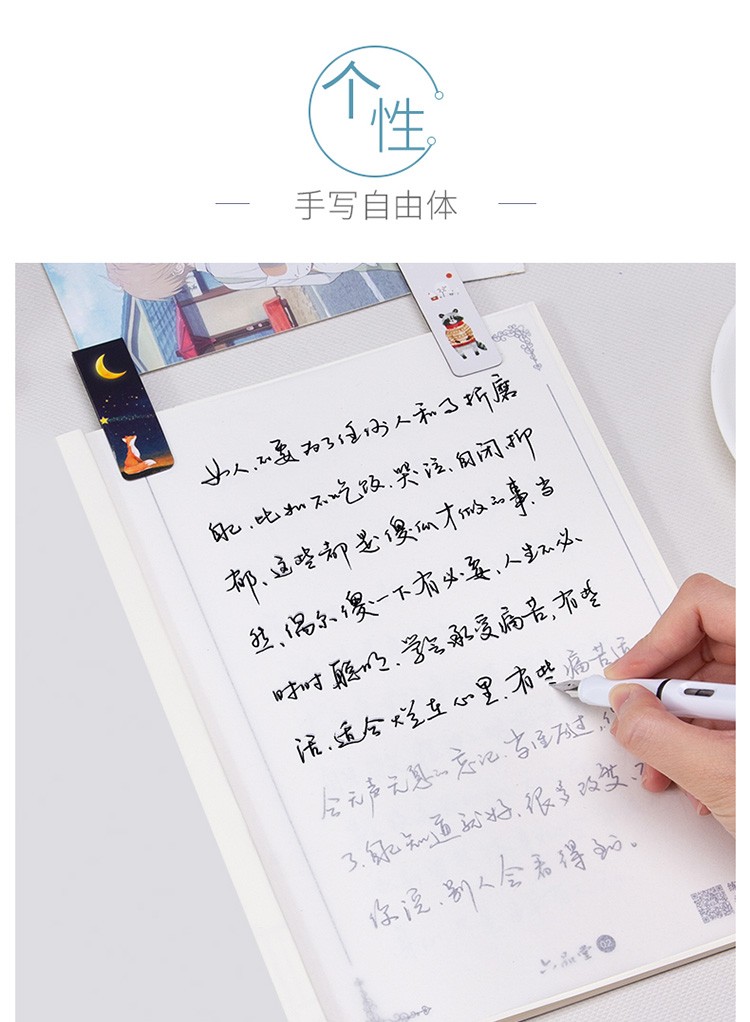 个性
手写自由体
女人、不要为了任何人和事折磨
自己、比如不吃饭、哭泣、自闭抑
郁、这些都是傻瓜才做的事、当
然、偶尔傻一下有必要、人生不必
时时聪明、学会承受痛苦、有些
话、适合烂在心里、有些痛苦适
合无声无息的忘记、当经历过、
了、自己知道就好、很多改变、不
你说、别人会看得到。
六品堂 02